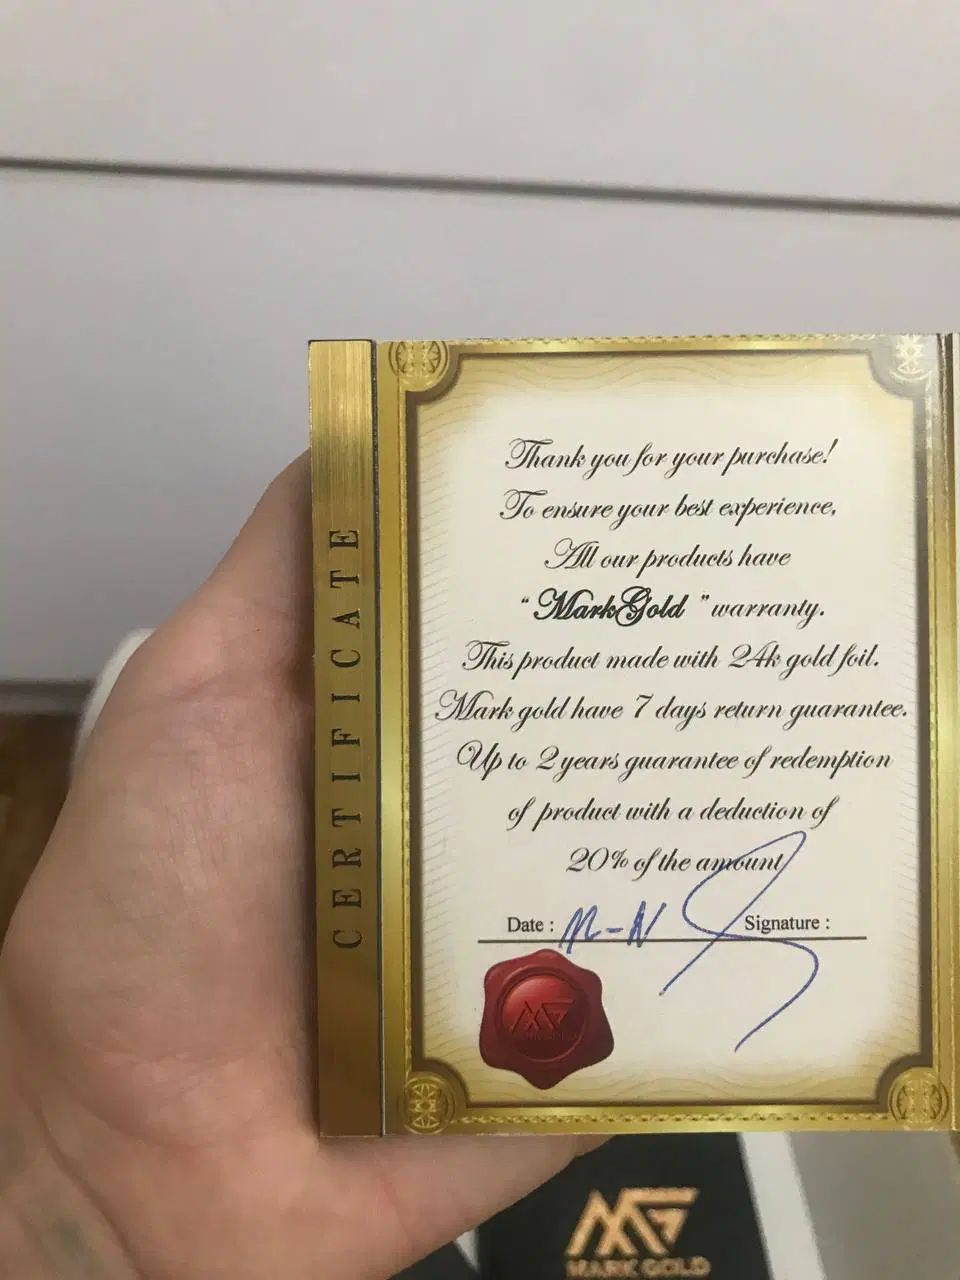 CERTIFICATE
Thank you for your purchase!
To ensure your best experience,
All our products have
“MarkGold” warranty.
This product made with 24k gold foil.
Mark gold have 7 days return guarantee.
Up to 2 years guarantee of redemption
of product with a deduction of
20% of the amount
Date :
Signature :
MG
MARK GOLD